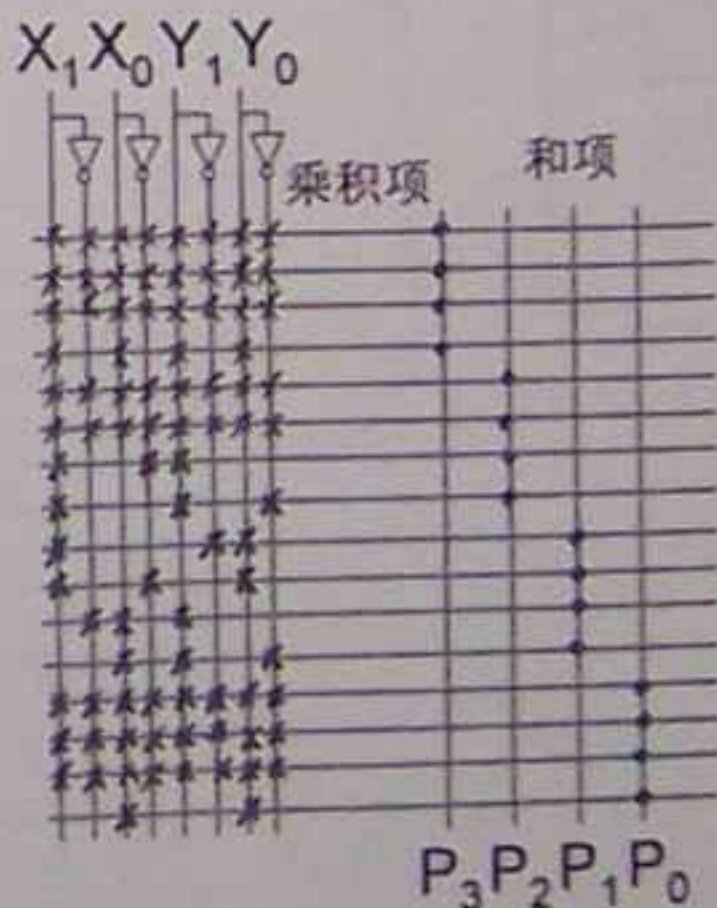 X₁ X₀ Y₁ Y₀
乘积项 和项
P₃ P₂ P₁ P₀